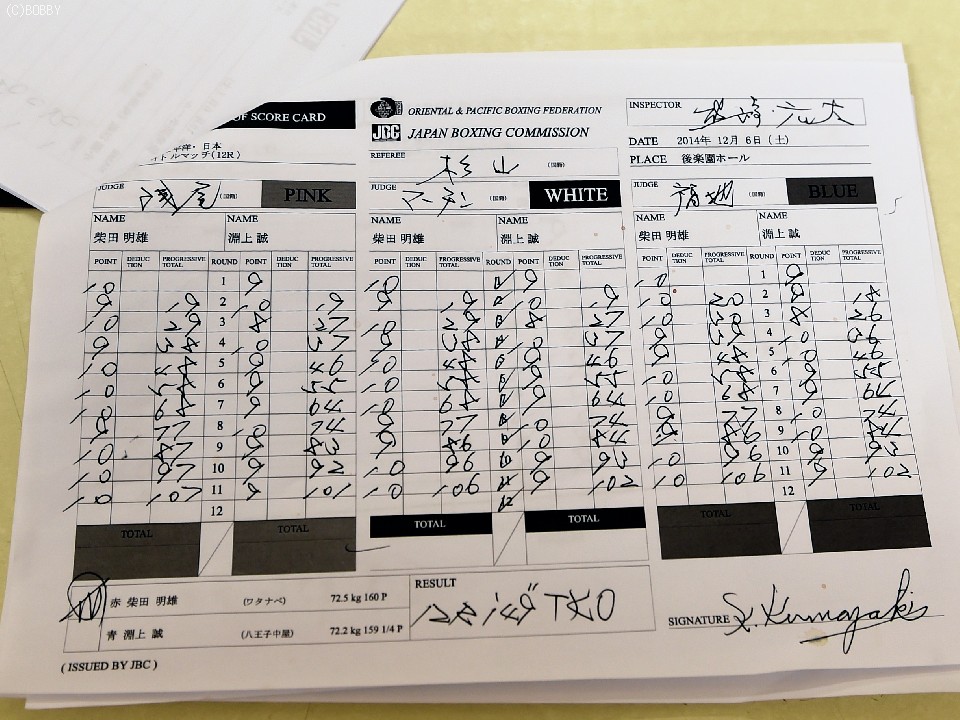 (C)BOBBY
OF SCORE CARD
平洋・日本
イトルマッチ(12R)
ORIENTAL & PACIFIC BOXING FEDERATION
JBC JAPAN BOXING COMMISSION
REFEREE 杉山 (国際)
INSPECTOR
DATE 2014年 12月 6日 (土)
PLACE 後楽園ホール
JUDGE (国際) PINK
JUDGE (国際) WHITE
JUDGE (国際) BLUE
NAME NAME NAME NAME NAME NAME
柴田 明雄 淵上 誠 柴田 明雄 淵上 誠 柴田 明雄 淵上 誠
POINT DEDUCTION PROGRESSIVE TOTAL ROUND POINT DEDUCTION PROGRESSIVE TOTAL
POINT DEDUCTION PROGRESSIVE TOTAL ROUND POINT DEDUCTION PROGRESSIVE TOTAL
POINT DEDUCTION PROGRESSIVE TOTAL ROUND POINT DEDUCTION PROGRESSIVE TOTAL
10 1 9 10 9 10 1 9
9 19 2 10 19 10 20 2 9 18
10 29 3 8 27 10 29 8 27 3 8 26
9 4 10 37 10 37 4 10 36
10 5 9 46 10 9 46 10 5 10 46
10 6 9 55 10 9 55 10 6 9 55
10 68 7 9 64 10 68 9 64 10 68 7 9 64
9 77 8 10 74 9 77 10 74 9 77 8 10 74
10 87 9 9 83 9 86 10 84 9 86 9 10 84
10 97 10 9 92 10 96 9 93 10 96 10 9 93
10 107 11 9 101 10 106 9 102 10 106 11 9 102
12 12 12
TOTAL TOTAL TOTAL TOTAL TOTAL TOTAL
W 赤 柴田 明雄 (ワタナベ) 72.5 kg 160 P
青 淵上 誠 (八王子中屋) 72.2 kg 159 1/4 P
RESULT
TKO
SIGNATURE S. Kumazaki
( ISSUED BY JBC )